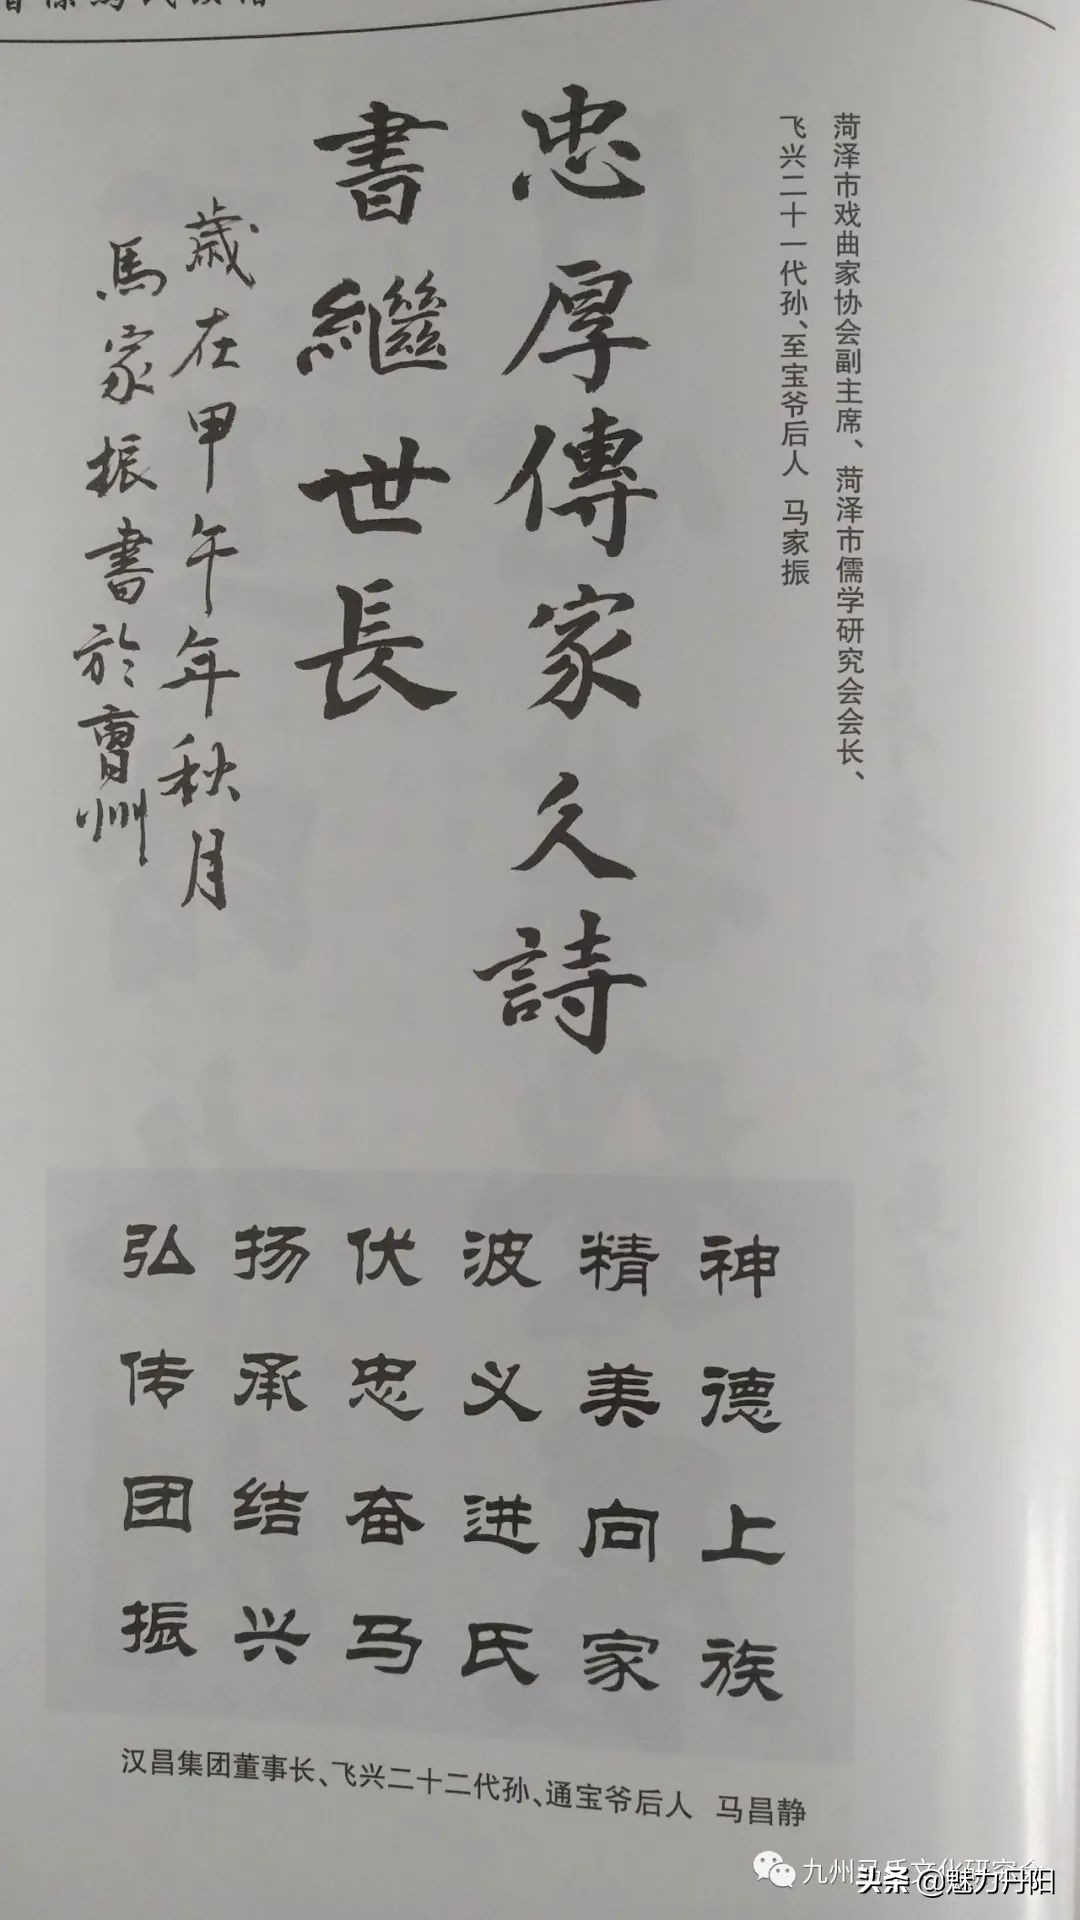 菏泽市戏曲家协会副主席、菏泽市儒学研究会会长、
飞兴二十一代孙、至宝爷后人 马家振
忠厚傳家久詩
書繼世長
歲在甲午年秋月
馬家振書於曹州
弘扬伏波精神
传承忠义美德
团结奋进向上
振兴马氏家族
汉昌集团董事长、飞兴二十二代孙、通宝爷后人 马昌静
头条 @魅力丹阳